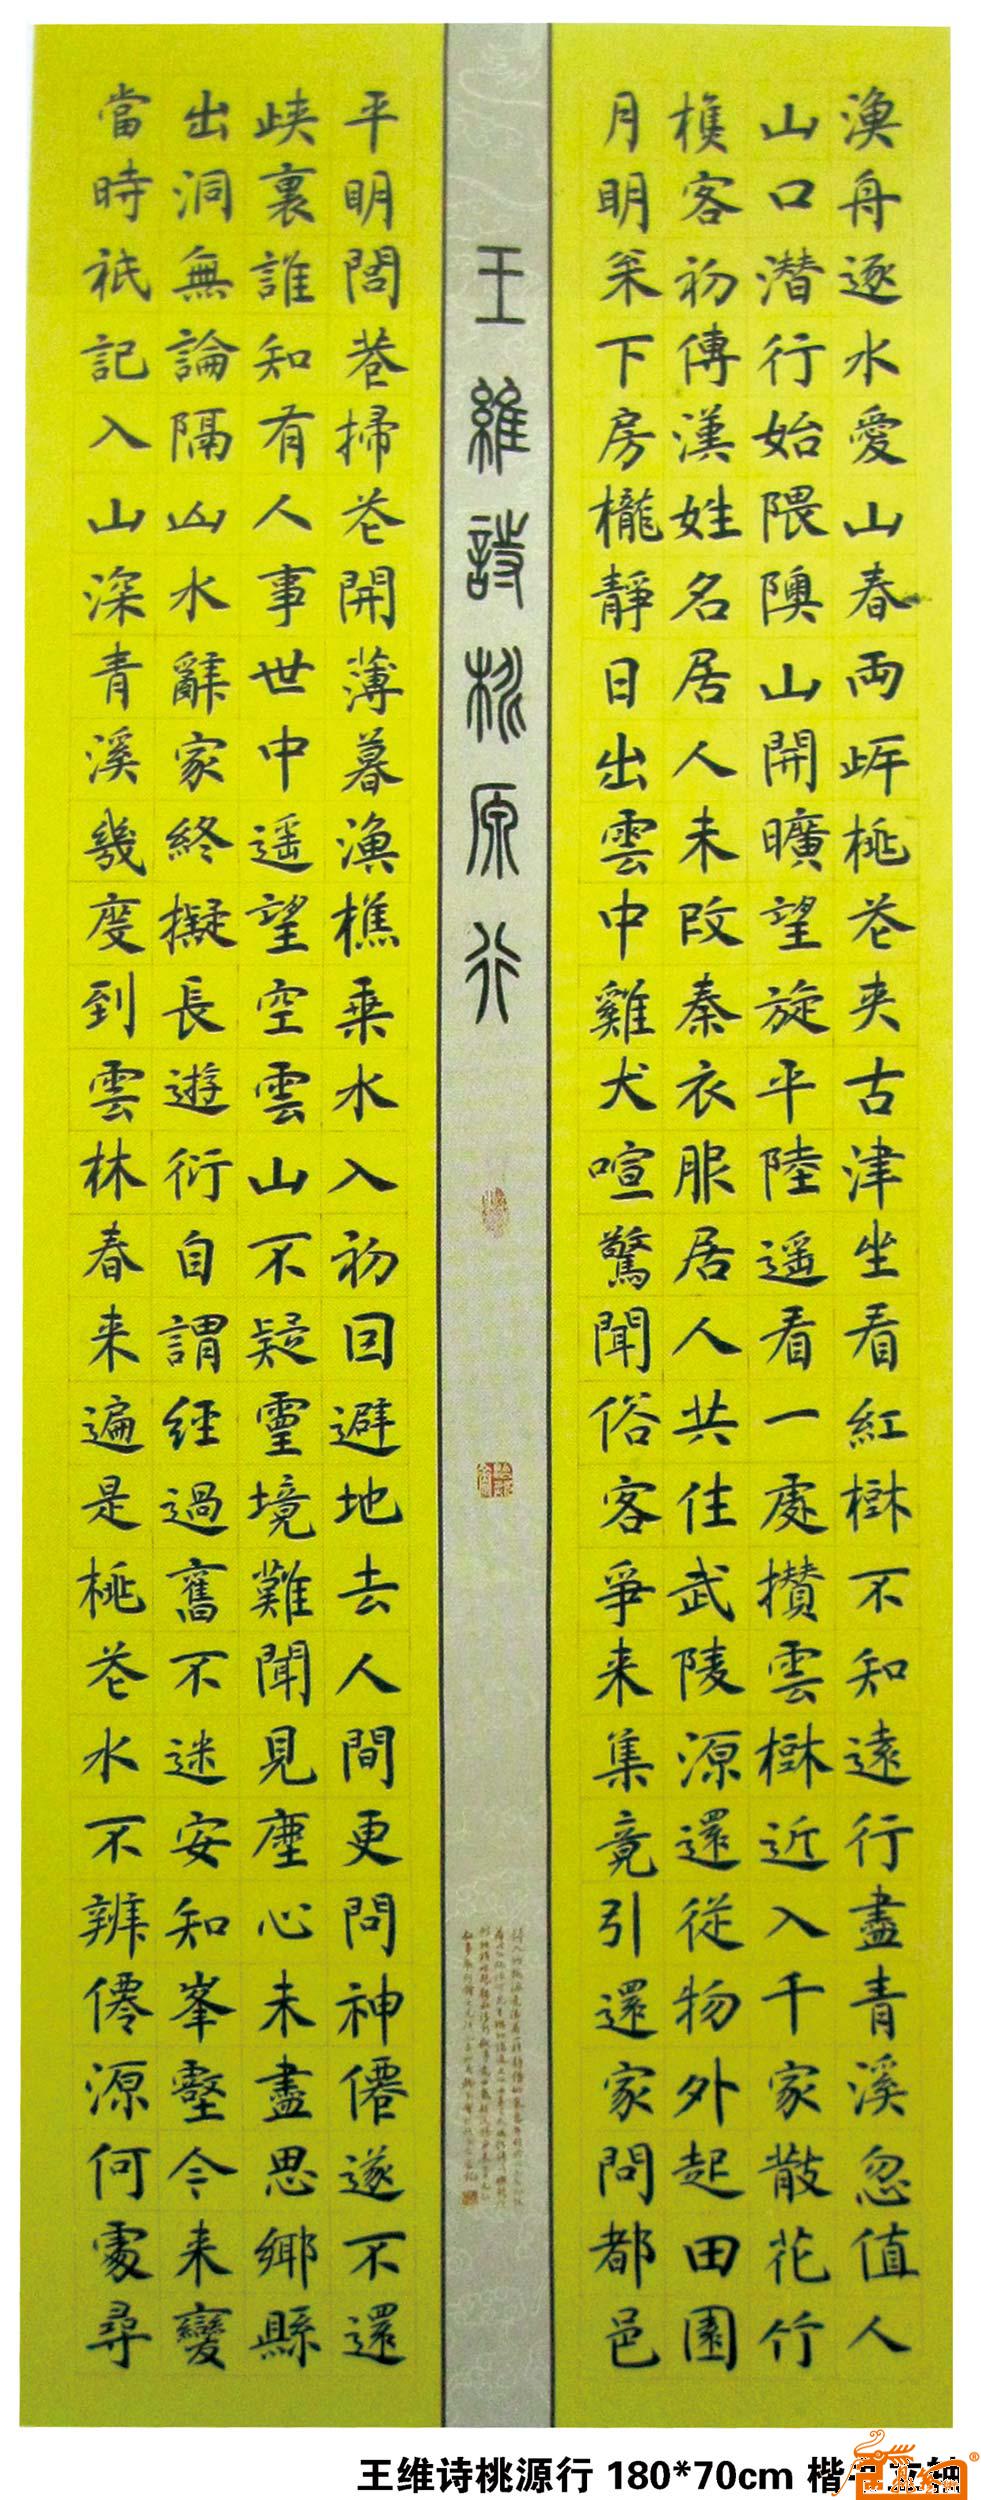 漁舟逐水愛山春両岸桃花夾古津坐看紅樹不知遠行盡青溪忽值人
山口潜行始隈隩山開曠望旋平陸遥看一處攢雲樹近入千家散花竹
樵客初傳漢姓名居人未改秦衣服居人共住武陵源還從物外起田園
月明枀下房櫳靜日出雲中雞犬喧驚聞俗客爭来集竟引還家問都邑
王維詩桃原行
平明閭巷掃花開薄暮漁樵乘水入初因避地去人間更問神僊遂不還
峽裏誰知有人事世中遥望空雲山不疑靈境難聞見塵心未盡思鄉縣
出洞無論隔山水辭家終擬長遊衍自謂經過舊不迷安知峯壑今来變
當時祇記入山深青溪幾度到雲林春来遍是桃花水不辨僊源何處尋
王维诗桃源行 180*70cm 楷书立轴